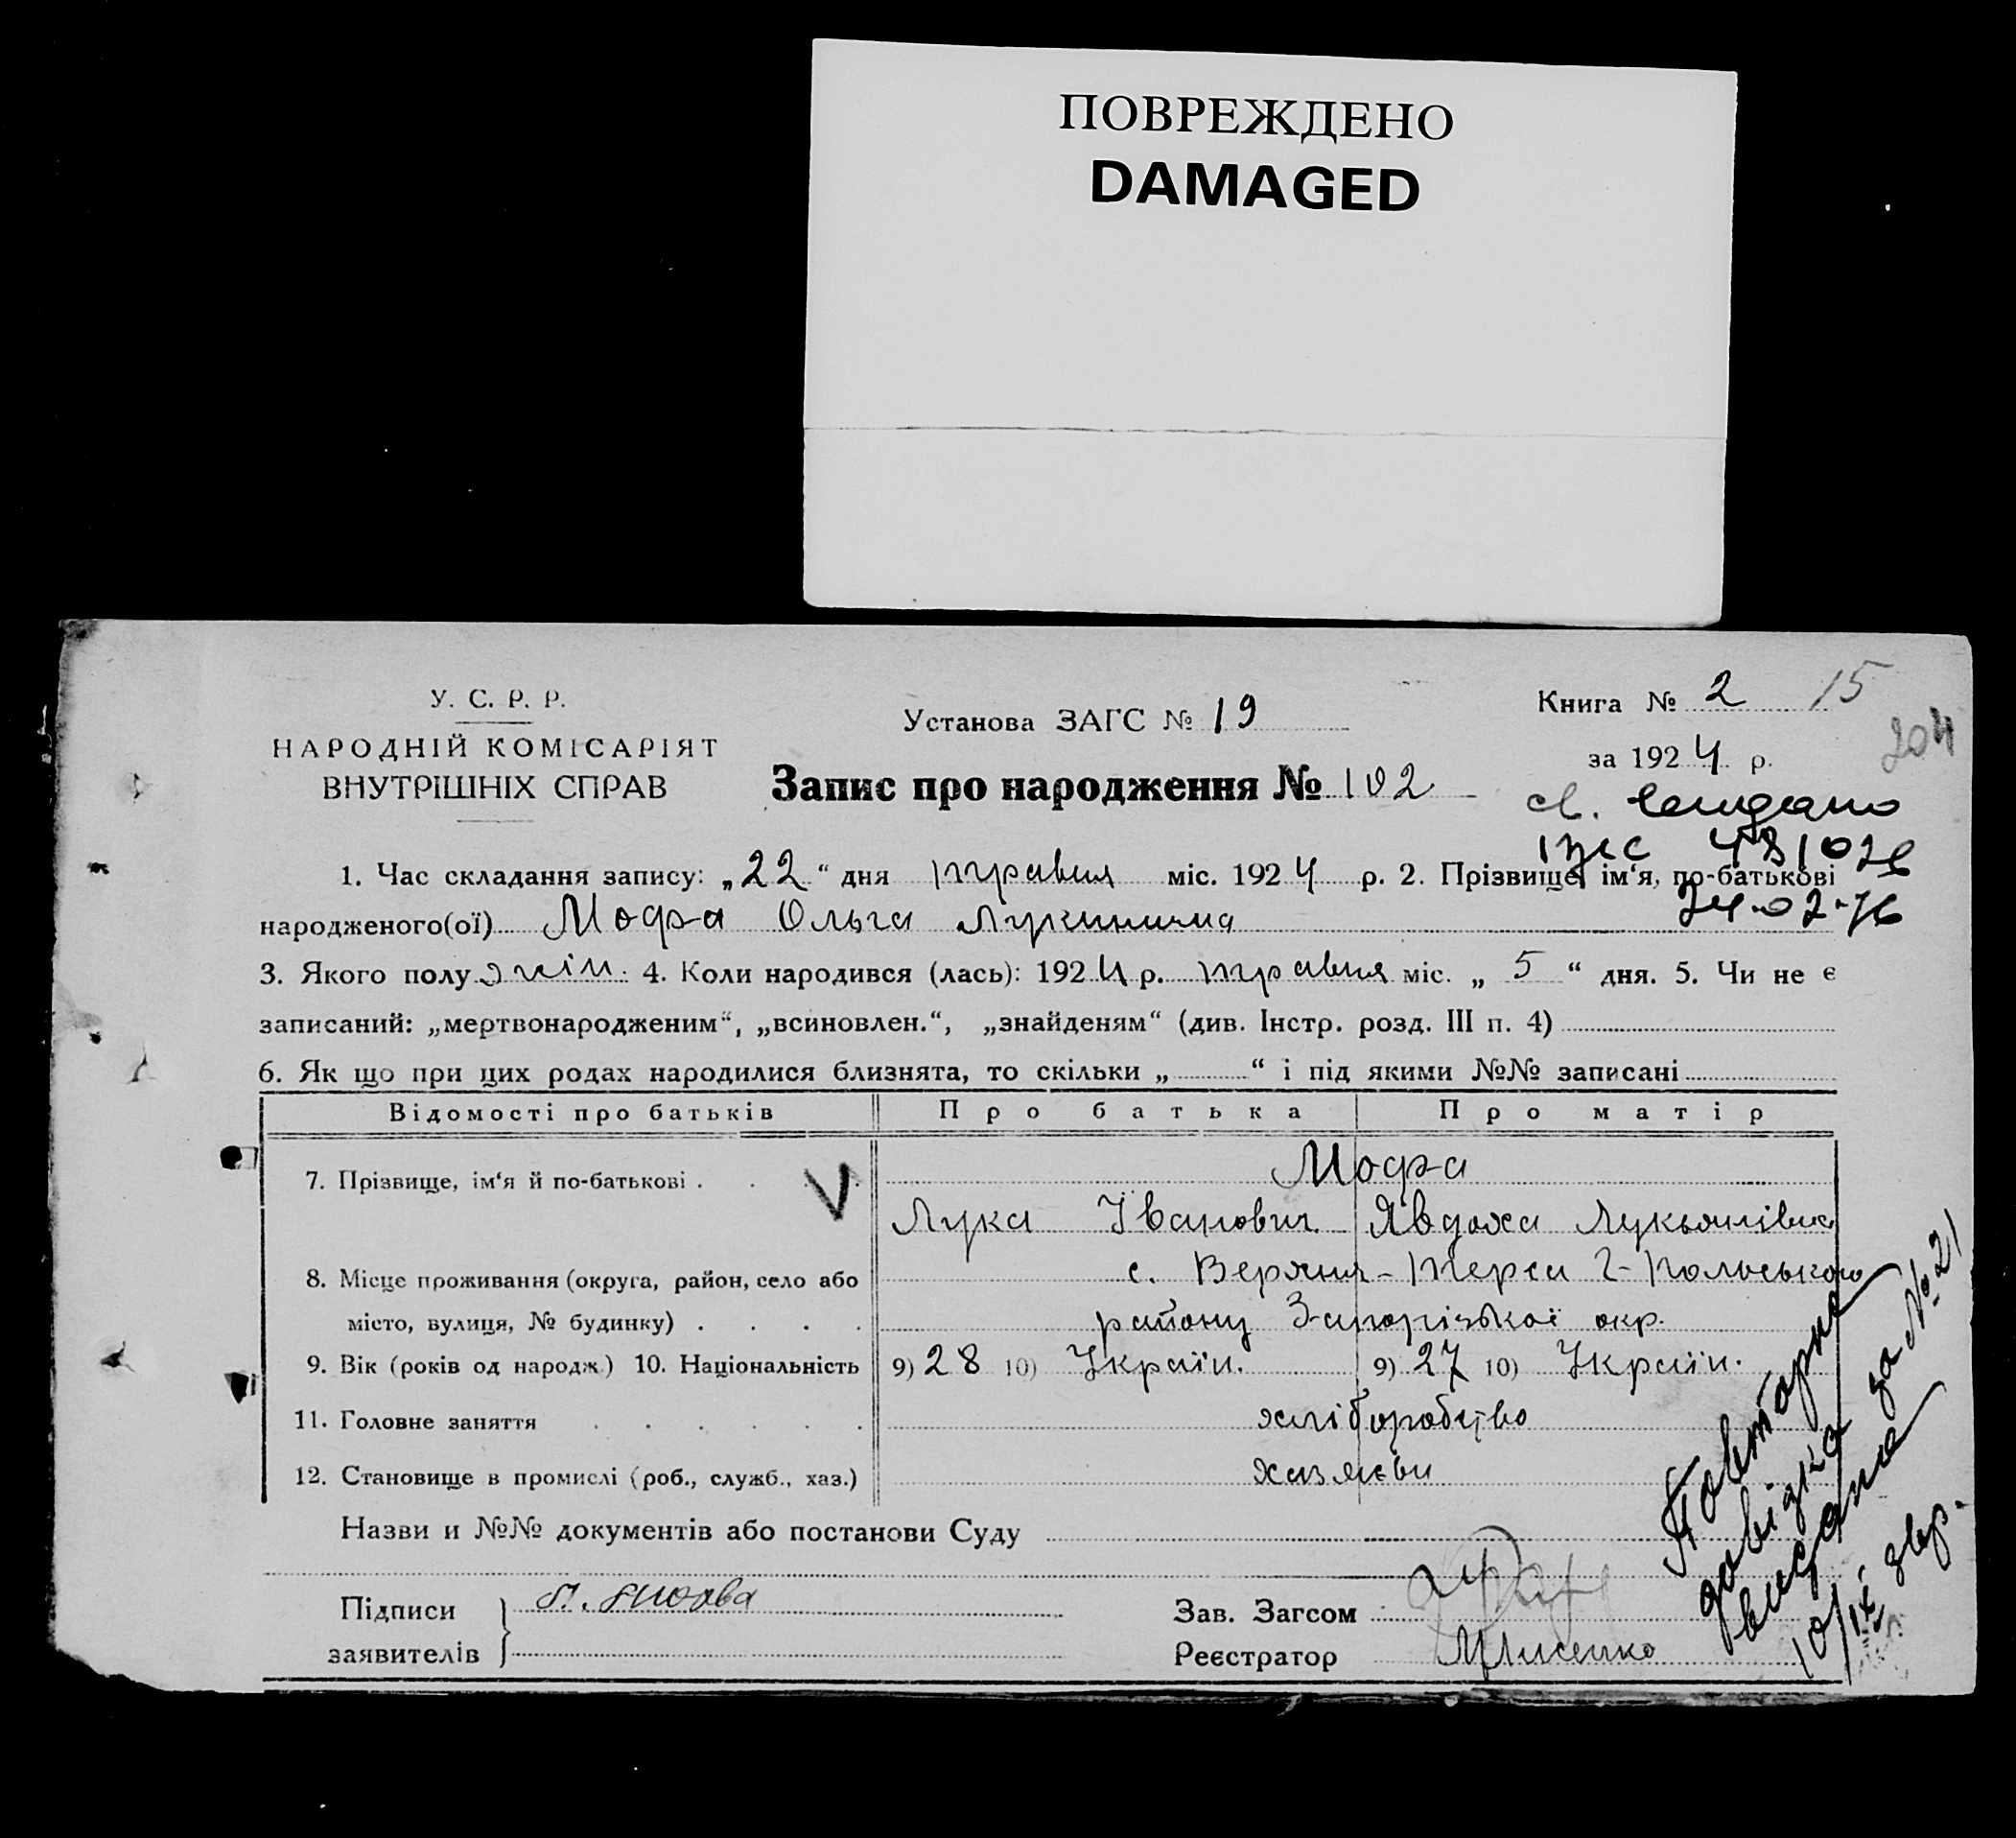 ПОВРЕЖДЕНО
DAMAGED
У. С. Р. Р.
НАРОДНІЙ КОМІСАРІЯТ
ВНУТРІШНІХ СПРАВ
Установа ЗАГС № 19
Запис про народження № 102
Книга № 2 15
за 1924 р.
204
св.
481026
24-02-76
1. Час складання запису: „22“ дня травня міс. 1924 р. 2. Прізвище, ім‘я, по-батькові
народженого(ої) Мофа Ольга Лукинична
3. Якого полу жін. 4. Коли народився (лась): 1924 р. травня міс. „ 5 “ дня. 5. Чи не є
записаний: „мертвонародженим“, „всиновлен.“, „знайденям“ (див. Інстр. розд. III п. 4)
6. Як що при цих родах народилися близнята, то скільки „ “ і під якими №№ записані
Відомості про батьків Про батька Про матір
7. Прізвище, ім‘я й по-батькові . . . . V Мофа
Лука Іванович Явдоха Лукьянівна
8. Місце проживання (округа, район, село або с. Верхня-Терса Г-Польського
місто, вулиця, № будинку) . . . . району Запорізької окр.
9. Вік (років од народж.) 10. Національність 9) 28 10) Україн. 9) 27 10) Україн.
11. Головне заняття . . . . . . хліборобство
12. Становище в промислі (роб., служб., хаз.) хазяєви
Назви и №№ документів або постанови Суду
Підписи
заявителів
Зав. Загсом
Реєстратор МЛисенко
Повторна
довідка за № 21
видана
10/IX